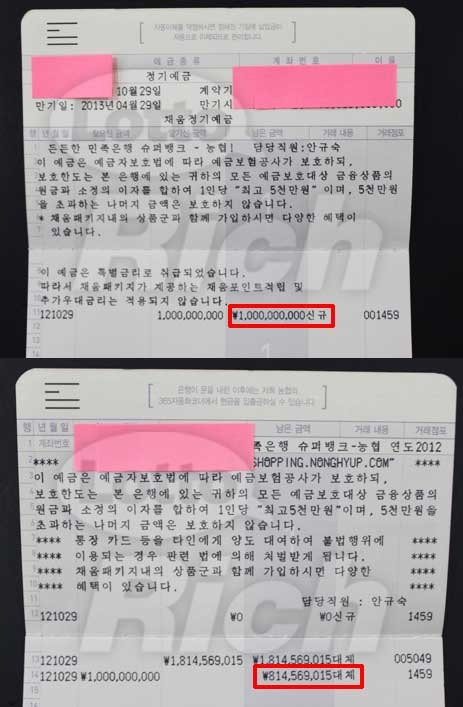 자동이체를 약정하시면 정해진 기일에 납입금이
자동으로 이체되므로 편리합니다.
예금종류 계좌번호 이율
정기예금
10월29일 계약기
만기일: 2013년04월29일 만기시
채움정기예금
행 년월일 찾으신 금액 맡기신 금액 남은 금액 거래 내용 거래점포
1 든든한 민족은행 슈퍼뱅크 - 농협! 담당직원:안규숙
이 예금은 예금자보호법에 따라 예금보험공사가 보호하되,
보호한도는 본 은행에 있는 귀하의 모든 예금보호대상 금융상품의
원금과 소정의 이자를 합하여 1인당 "최고 5천만원" 이며, 5천만원
을 초과하는 나머지 금액은 보호하지 않습니다.
* 채움패키지내의 상품군과 함께 가입하시면 다양한 혜택이
있습니다.
이 예금은 특별금리로 취급되었습니다.
따라서 채움패키지가 제공하는 채움포인트적립 및
추가우대금리는 적용되지 않습니다.
11 121029 1,000,000,000 ₩1,000,000,000신규 001459
Lotto
Rich
은행이 문을 내린 이후에는 저희 농협의
365자동화코너에서 현금을 입출금하실 수 있습니다.
행 년월일 남은 금액 거래 내용 거래점포
1 계좌번호 족은행 슈퍼뱅크-농협 연도2012
2 **** SHOPPING.NONGHYUP.COM" ****
3 이 예금은 예금자보호법에 따라 예금보험공사가 보호하되,
4 보호한도는 본 은행에 있는 귀하의 모든 예금보호대상 금융상품의
5 원금과 소정의 이자를 합하여 1인당 "최고5천만원"이며, 5천만원을
6 초과하는 나머지 금액은 보호하지 않습니다.
7 **** 통장 카드 등을 타인에게 양도 대여하여 불법행위에 ****
8 **** 이용되는 경우 관련 법에 의해 처벌받게 됩니다. ****
9 **** 채움패키지내의 상품군과 함께 가입하시면 다양한 ****
10 **** 혜택이 있습니다. ****
11 담당직원 : 안규숙
12 121029 ₩0 ₩0신규 1459
13 121029 ₩1,814,569,015 ₩1,814,569,015대체 005049
14 121029 ₩1,000,000,000 ₩814,569,015대체 1459
Lotto
Rich